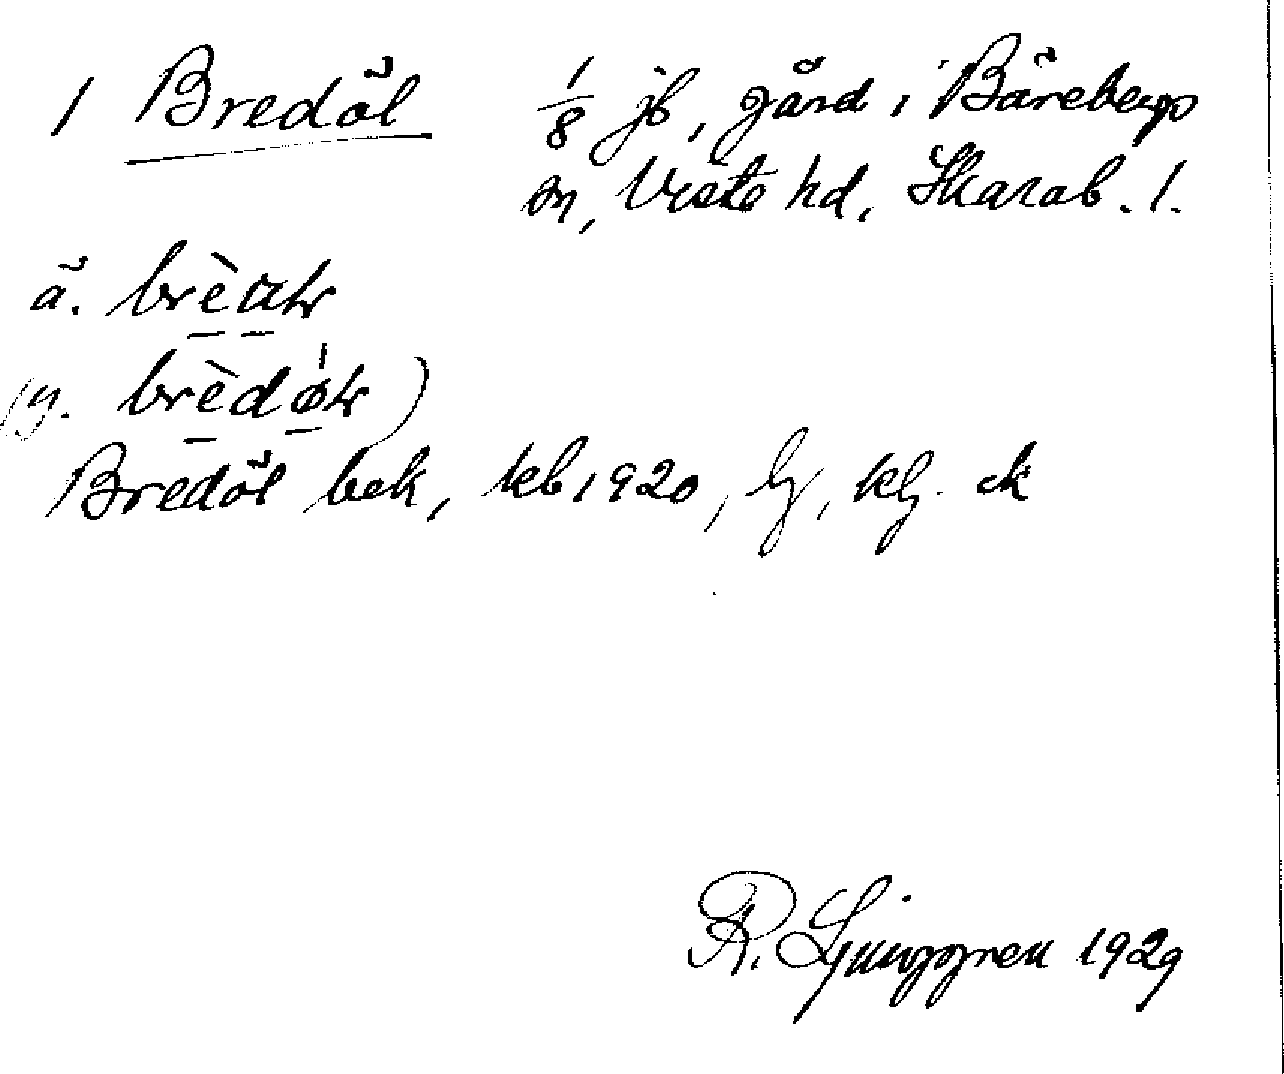 1 Bredöl 1/8 jb, gård i Bärebergs
sn, Viste hd, Skarab. l.
ä. brèatr
(y. brèdøtr)
Bredöl bek, kb 1920, lj, klj. ek
R. Ljunggren 1929